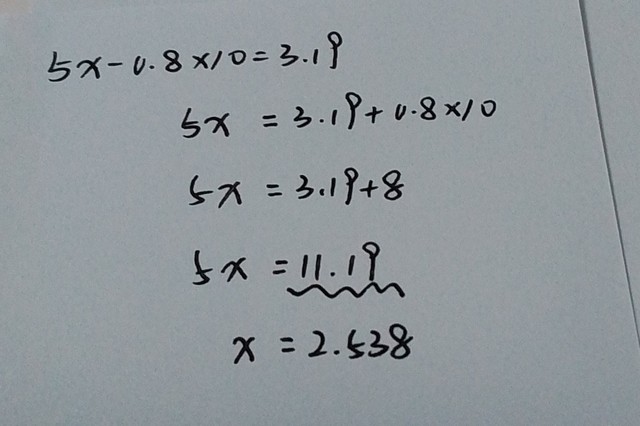 5x-0.8×10=3.19
5x=3.19+0.8×10
5x=3.19+8
5x=11.19
x=2.538